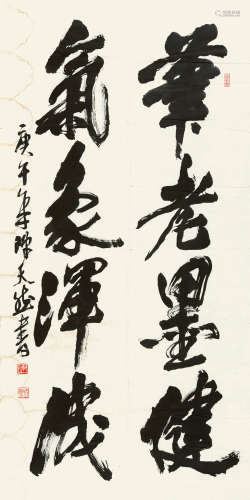 筆老墨健
氣象渾成
庚午年陳天然書